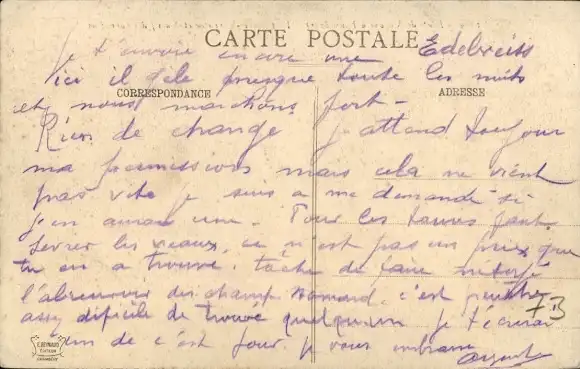 CARTE POSTALE
je t'envoie encore une Edelweiss
ici il gèle presque toute les nuits
CORRESPONDANCE
ADRESSE
et nous marchons fort -
Rien de change j'attend toujour
ma permission mais cela ne vient
pas vite je suis a me demandé si
j'en aurai une. Pour les
sevrer les veaux, ce n'est pas un prix que
tu en a trouvé. tâche de faire
l'abreuvoir du champ c'est
assez dificile de trouvé quelqu'un je t'écrirai
un de c'est jour je vous embrasse
73
E. REYNAUD
EDITEUR
CHAMBERY